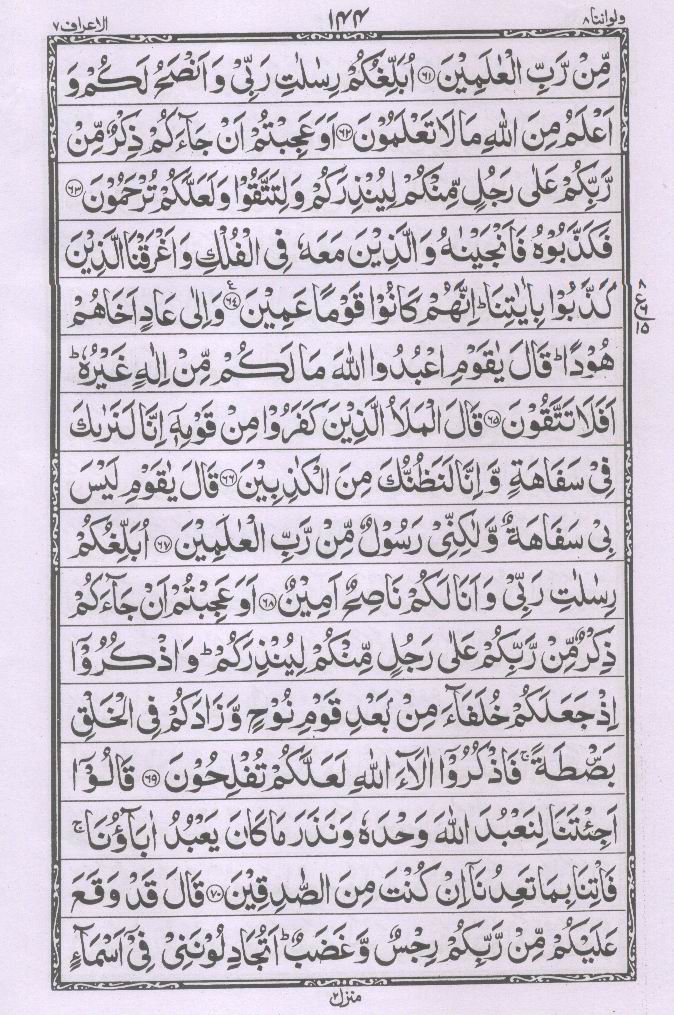 ولواننا ٨ ١٤٤ الاعراف ٧
مِّنْ رَّبِّ الْعٰلَمِيْنَ ﴿٦١﴾ اُبَلِّغُكُمْ رِسٰلٰتِ رَبِّيْ وَاَنْصَحُ لَكُمْ وَ
اَعْلَمُ مِنَ اللّٰهِ مَا لَا تَعْلَمُوْنَ ﴿٦٢﴾ اَوَعَجِبْتُمْ اَنْ جَآءَكُمْ ذِكْرٌ مِّنْ
رَّبِّكُمْ عَلٰى رَجُلٍ مِّنْكُمْ لِيُنْذِرَكُمْ وَلِتَتَّقُوْا وَلَعَلَّكُمْ تُرْحَمُوْنَ ﴿٦٣﴾
فَكَذَّبُوْهُ فَاَنْجَيْنٰهُ وَالَّذِيْنَ مَعَهٗ فِي الْفُلْكِ وَاَغْرَقْنَا الَّذِيْنَ
كَذَّبُوْا بِاٰيٰتِنَا ؕ اِنَّهُمْ كَانُوْا قَوْمًا عَمِيْنَ ﴿٦٤﴾ ع وَاِلٰى عَادٍ اَخَاهُمْ
٨ ع ٦ ١٥
هُوْدًا ؕ قَالَ يٰقَوْمِ اعْبُدُوا اللّٰهَ مَا لَكُمْ مِّنْ اِلٰهٍ غَيْرُهٗ ؕ
اَفَلَا تَتَّقُوْنَ ﴿٦٥﴾ قَالَ الْمَلَاُ الَّذِيْنَ كَفَرُوْا مِنْ قَوْمِهٖٓ اِنَّا لَنَرٰىكَ
فِيْ سَفَاهَةٍ وَّاِنَّا لَنَظُنُّكَ مِنَ الْكٰذِبِيْنَ ﴿٦٦﴾ قَالَ يٰقَوْمِ لَيْسَ
بِيْ سَفَاهَةٌ وَّلٰكِنِّيْ رَسُوْلٌ مِّنْ رَّبِّ الْعٰلَمِيْنَ ﴿٦٧﴾ اُبَلِّغُكُمْ
رِسٰلٰتِ رَبِّيْ وَاَنَا لَكُمْ نَاصِحٌ اَمِيْنٌ ﴿٦٨﴾ اَوَعَجِبْتُمْ اَنْ جَآءَكُمْ
ذِكْرٌ مِّنْ رَّبِّكُمْ عَلٰى رَجُلٍ مِّنْكُمْ لِيُنْذِرَكُمْ ؕ وَاذْكُرُوْٓا
اِذْ جَعَلَكُمْ خُلَفَآءَ مِنْۢ بَعْدِ قَوْمِ نُوْحٍ وَّزَادَكُمْ فِي الْخَلْقِ
بَصْۜطَةً ۚ فَاذْكُرُوْٓا اٰلَآءَ اللّٰهِ لَعَلَّكُمْ تُفْلِحُوْنَ ﴿٦٩﴾ قَالُوْٓا
اَجِئْتَنَا لِنَعْبُدَ اللّٰهَ وَحْدَهٗ وَنَذَرَ مَا كَانَ يَعْبُدُ اٰبَآؤُنَا ۚ
فَاْتِنَا بِمَا تَعِدُنَآ اِنْ كُنْتَ مِنَ الصّٰدِقِيْنَ ﴿٧٠﴾ قَالَ قَدْ وَقَعَ
عَلَيْكُمْ مِّنْ رَّبِّكُمْ رِجْسٌ وَّغَضَبٌ ؕ اَتُجَادِلُوْنَنِيْ فِيْٓ اَسْمَآءٍ
منزل ٢